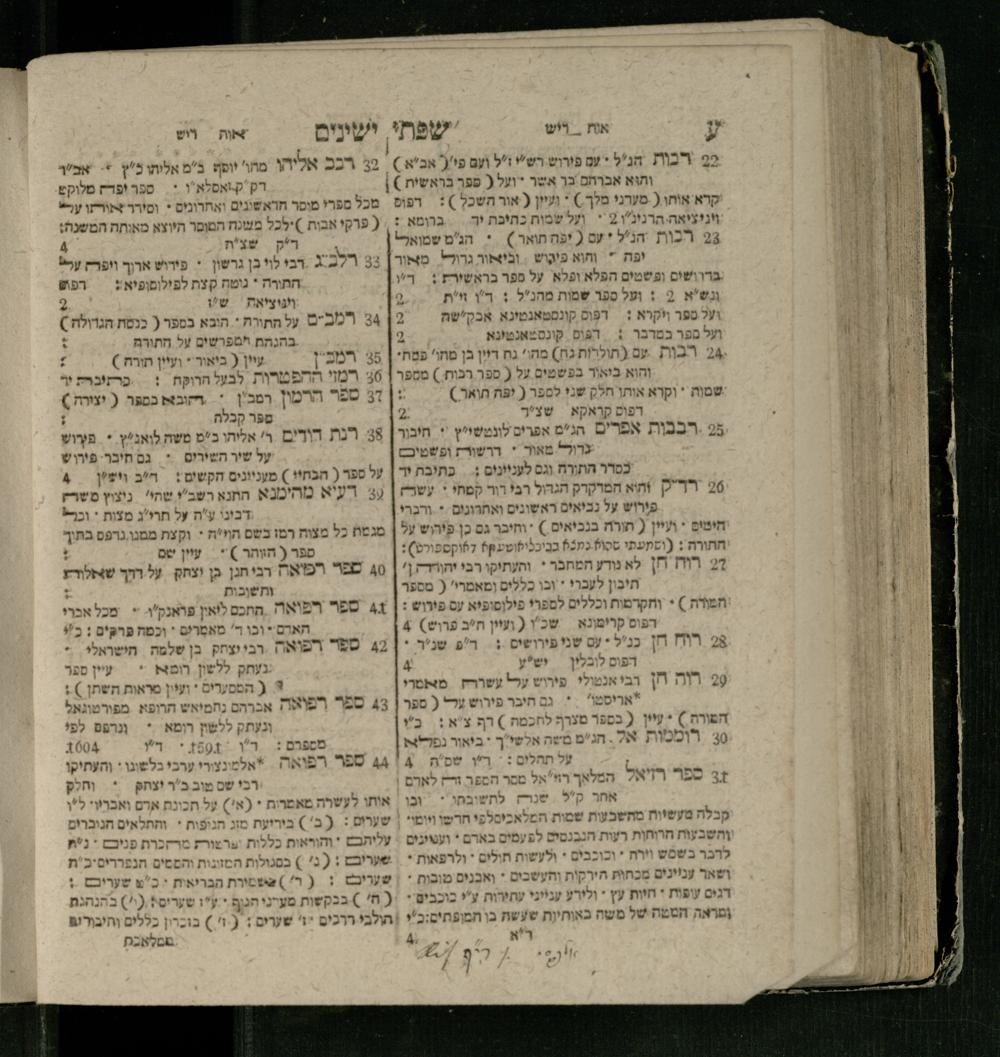 ע אות ריש שפתי ישינים אות ריש
22 רבות הנ"ל · עם פירוש רש"י ז"ל ועם פי' (אב"א)
והוא אברהם בר אשר · ועל (ספר בראשית)
קרא אותו (מעדני מלך) · ועיין (אור השכל) : דפוס
ויניציאה 2 · ועל שמות כתיבת יד ברומא :
23 רבות הנ"ל · עם (יפה תואר) · הג"מ שמואל
יפה · והוא פירוש וביאור גדול מאוד
בדרושים ופשטים הפלא ופלא על ספר בראשית : ד"ו
ונש"א 2 : ועל ספר שמות מהנ"ל : ד"ו 2
ועל ספר ויקרא : דפוס קונסטאנטינא 2
ועל ספר במדבר : דפוס קונסטאנטינא 2
24 רבות עם (תולדית נח) מהו' נח דיין בן מהו' פסח ·
והוא ביאור בפשטים על (ספר רבות) מספר
שמות · וקרא אותו חלק שני לספר (יפה תואר) :
דפוס קראקא שצ"ד 2
25 רבבות אפרים הג"מ אפרים לונטשי"ץ · חיבור
גדול מאוד · דרשות ופשטים
כסדר התורה וגם לעניינים : כתיבת יד
26 רד"ק והוא המדקדק הגדול רבי דוד קמחי · עשה
פירוש על נביאים ראשונים ואחרונים · ודברי
הימים · ועיין (תורה בנביאים) · וחיבר גם כן פירוש על
התורה : (ושמעתי שהוא נמצא בביבליאטעקא דאוקספורט) :
27 רוח חן לא נודע המחבר · והעתיקו רבי יהודה ן'
תיבון לעברי · ובו כללים ומאמרי' (מספר
המורה) · והקדמות וכללים לספרי פילוסופיא עם פירוש :
דפוס קרימונא שכ"ו (ועיין ח"ב פרוש) 4
28 רוח חן כנ"ל · עם שני פירושים : ד"פ שנ"ד ·
דפוס לובלין יש"ע 4
29 רוה חן רבי אנטולי פירוש על עשרה מאמרי
*אריסטו' · גם חיבר פירוש על (ספר
המורה) · עיין (בספר מצרף לחכמה) דף צ"א : כ"י
30 רוממות אל הג"מ משה אלשי"ך · ביאור נפלא
על תהלים : ד"ו שס"ה 4
31 ספר רזיאל המלאך רזי"אל מסר הספר זה לאדם
אחר ק"ל שנה לתשובתו · ובו
קבלה מעשיות מהשבעות שמות המלאכים לפי חדשו ויומו ·
והשבעות הרוחות רעות הנכנסים לפעמים באדם · ועניינים
לדבר בשמש וירח · וכוכבים · ולעשות חולים · ולרפאות ·
ושאר עניינים מכחות הירקות והעשבים · ואבנים טובות ·
דגים עופות · חיות עץ · ולידע ענייני עתידות ע"י כוכבים ·
ומראה המטה של משה באותיות שעשה בו המופתים : כ"י
4
32 רכב אליהו מהו' יוסף ב"מ אליהו כ"ץ · אב"ד
ספר יפה מלוקט
מכל ספרי מוסר הראשונים ואחרונים · וסידר אותו על
(פרקי אבות) · לכל משנה המוסר היוצא מאותה המשנה :
ד"ק שצ"ח 4
33 רלב"ג רבי לוי בן גרשון · פירוש ארוך ויפה על
התורה · נוטה קצת לפילוסופיא : דפוס
ויניציאה ש"ז 2
34 רמב"ם על התורה · הובא בספר (כנסת הגדולה)
בהגהת המפרשים על התורה :
35 רמב"ן עיין (ביאור · ועיין תורה) :
36 רמזי ההפטרות לבעל הרוקח : כתיבת יד
37 ספר הרמון רמב"ן · הובא בספר (יצירה)
ספר קבלה :
38 רנת דודים ר' אליהו ב"מ משה לואנ"ץ · פירוש
על שיר השירים · גם חיבר פירוש
על ספר (הבחיי) מעניינים הקשים : ד"ב ויש"ן 4
39 רעיא מהימנא התנא רשב"י שהי' ניצוץ משה
רבינו ע"ה על תרי"ג מצות · וכל
מגמת כל מצוה רמז בשם הוי"ה · וקצת ממנו נדפס בתוך
ספר (הזוהר) · עיין שם :
40 ספר רפואה רבי חנן בן יצחק על דרך שאלות
ותשובות :
41 ספר רפואה החכם ליאין פראנק"ו · מכל אברי
האדם · ובו ד' מאמרים · וכמה פרקים : כ"י
42 ספר רפואה רבי יצחק בן שלמה הישראלי ·
נעתק ללשון רומא · עיין ספר
(המסעדים · ועיין מראות השתן) :
43 ספר רפואה אברהם נחמיאש הרופא מפורטוגאל
ונעתק ללשון רומא · ונדפס לפי
מספרם : ד"ו 1591. ד"ו 1604.
44 ספר רפואה *אלמנצורי ערבי בלשונו · והעתיקו
רבי שם טוב ב"ר יצחק · וחלק
אותו לעשרה מאמרות · (א') על תכונת אדם ואבריו · ל"ו
שערים : (ב') בידיעת מזג הגופות · והתלאים הגוברים
עליהם · והוראות כללות מהכרת פנים · נ"ח
שערים : (ג') בסגולות המזונות והסמים הנפרדים · כ"ח
שערים : (ד') בשמירת הבריאות · כ"ט שערים :
(ה') בבקשות מעדני הגוף · ע"ז שערים : (ו') בהנהגת
הולכי דרכים · ז' שערים : (ז') בזכרון כללים וחיבורים
במלאכת